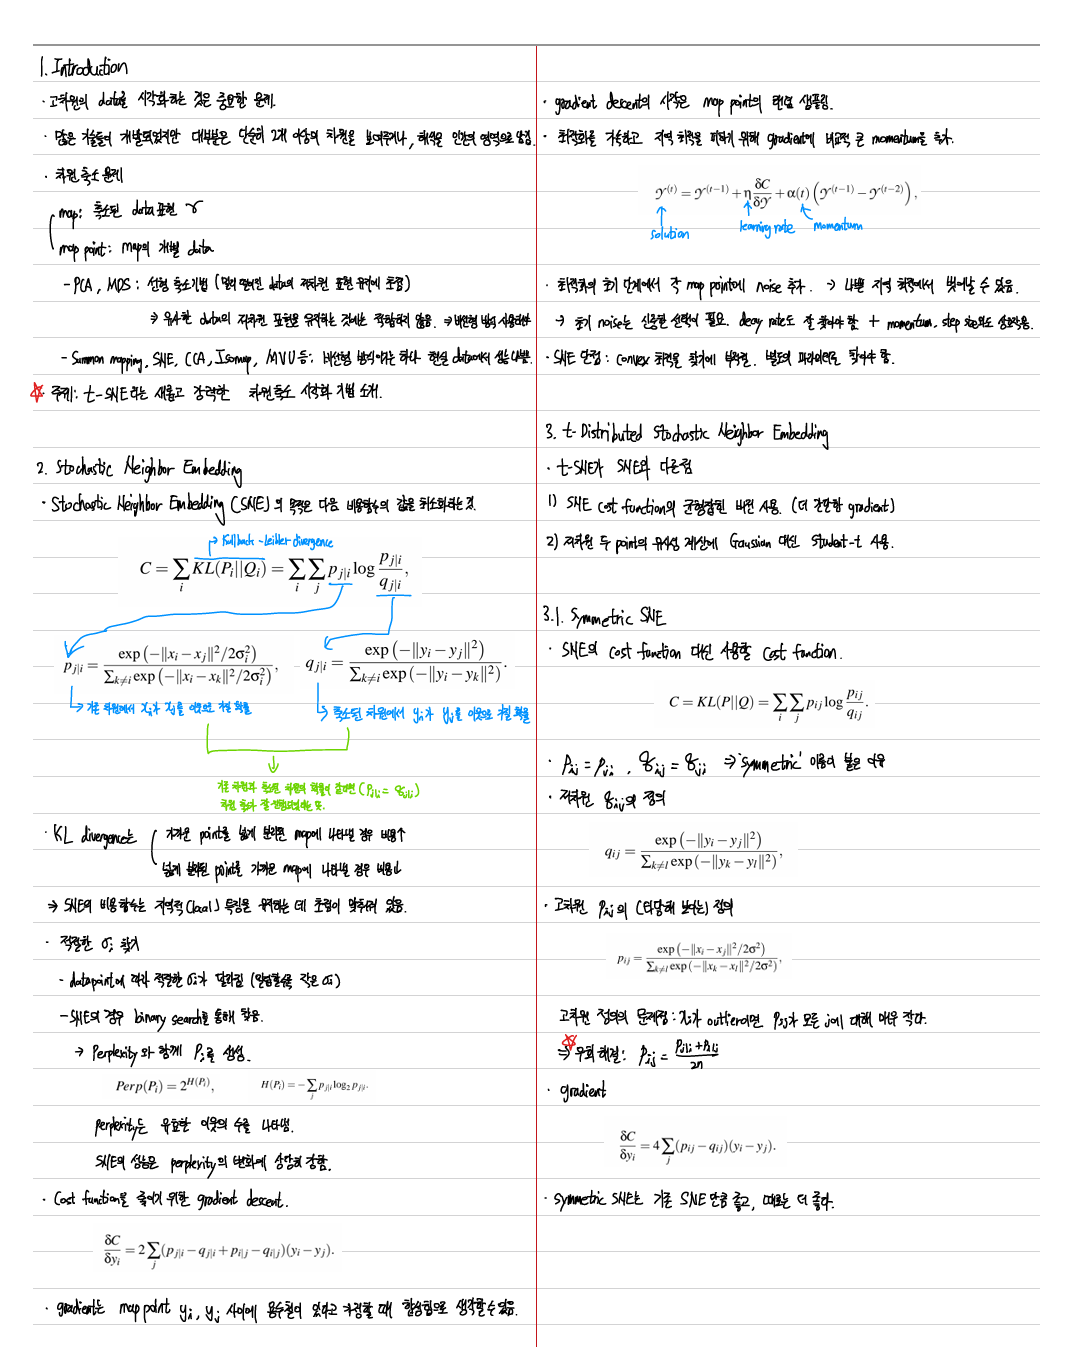 1. Introduction
· 고차원의 data를 시각화하는 것은 중요한 문제.
· 많은 기술들이 개발되었지만 대부분은 단순히 2개 이상의 차원을 보여주거나, 해석은 인간의 영역으로 남김.
· 차원 축소 문제
map: 축소된 data 표현 γ
map point: map의 개별 data
- PCA, MDS: 선형 축소기법 (멀리 떨어진 data의 저차원 표현 유지에 초점)
⇒ 유사한 data의 저차원 표현을 유지하는 것에는 적합하지 않음. ⇒ 비선형 방식 사용해야
- Sammon mapping, SNE, CCA, Isomap, MVU 등: 비선형 방식이기는 하나 현실 data에서 성능 나쁨.
☆ 주제: t-SNE라는 새롭고 강력한 차원축소 시각화 기법 소개.
2. Stochastic Neighbor Embedding
· Stochastic Neighbor Embedding (SNE)의 목적은 다음 비용함수의 값을 최소화하는 것.
→ Kullback-Leibler divergence
C = ∑_i KL(P_i||Q_i) = ∑_i ∑_j p_{j|i} log p_{j|i}/q_{j|i},
p_{j|i} = exp(−‖x_i − x_j‖²/2σ_i²) / ∑_{k≠i} exp(−‖x_i − x_k‖²/2σ_i²),
q_{j|i} = exp(−‖y_i − y_j‖²) / ∑_{k≠i} exp(−‖y_i − y_k‖²).
→ 기존 차원에서 x_i가 x_j를 이웃으로 가질 확률
→ 축소된 차원에서 y_i가 y_j를 이웃으로 가질 확률
기존 차원과 축소된 차원의 확률이 같다면 (p_{j|i} = q_{j|i})
차원 축소가 잘 진행되었다는 뜻.
· KL divergence는
가까운 point를 넓게 분포된 map에 나타낼 경우 비용↑
넓게 분포된 point를 가까운 map에 나타낼 경우 비용↓
⇒ SNE의 비용함수는 지역적(local) 특징을 유지하는 데 초점이 맞춰져 있음.
· 적절한 σ_i 찾기
- datapoint에 따라 적절한 σ_i가 달라짐 (밀집할수록 작은 σ_i)
- SNE의 경우 binary search를 통해 찾음.
→ Perplexity와 함께 P_i를 생성.
Perp(P_i) = 2^{H(P_i)},
H(P_i) = −∑_j p_{j|i} log₂ p_{j|i}.
perplexity는 유효한 이웃의 수를 나타냄.
SNE의 성능은 perplexity의 변화에 상당히 강함.
· Cost function을 줄이기 위한 gradient descent.
δC/δy_i = 2∑_j (p_{j|i} − q_{j|i} + p_{i|j} − q_{i|j})(y_i − y_j).
· gradient는 map point y_i, y_j 사이에 용수철이 있다고 가정할 때 합성힘으로 생각할 수 있음.
· gradient descent의 시작은 map point의 랜덤 샘플링.
· 최적화를 가속하고 지역 최적을 피하기 위해 gradient에 비교적 큰 momentum을 추가.
𝒴^(t) = 𝒴^(t−1) + η δC/δ𝒴 + α(t)(𝒴^(t−1) − 𝒴^(t−2)),
solution
learning rate
momentum
· 최적화의 초기 단계에서 각 map point에 noise 추가. → 나쁜 지역 최적에서 벗어날 수 있음.
→ 초기 noise는 신중한 선택이 필요. decay rate도 잘 찾아야 함 + momentum, step size와도 상호작용.
· SNE 단점: convex 최적을 찾기에 부적절. 별도의 파라미터도 찾아야 함.
3. t-Distributed Stochastic Neighbor Embedding
· t-SNE가 SNE와 다른점
1) SNE cost function의 균형잡힌 버전 사용. (더 간단한 gradient)
2) 저차원 두 point의 유사성 계산에 Gaussian 대신 Student-t 사용.
3.1. Symmetric SNE
· SNE의 cost function 대신 사용할 cost function.
C = KL(P||Q) = ∑_i ∑_j p_{ij} log p_{ij}/q_{ij}.
· p_{ij} = p_{ji}, q_{ij} = q_{ji} ⇒ 'symmetric' 이름이 붙은 이유
· 저차원 q_{ij}의 정의
q_{ij} = exp(−‖y_i − y_j‖²) / ∑_{k≠l} exp(−‖y_k − y_l‖²),
· 고차원 p_{ij}의 (타당해 보이는) 정의
p_{ij} = exp(−‖x_i − x_j‖²/2σ²) / ∑_{k≠l} exp(−‖x_k − x_l‖²/2σ²),
고차원 정의의 문제점: x_i가 outlier이면 p_{ij}가 모든 j에 대해 매우 작다.
☆ ⇒ 우회 해결: p_{ij} = (p_{j|i} + p_{i|j})/2n
· gradient
δC/δy_i = 4∑_j (p_{ij} − q_{ij})(y_i − y_j).
· symmetric SNE는 기존 SNE만큼 좋고, 때로는 더 좋다.